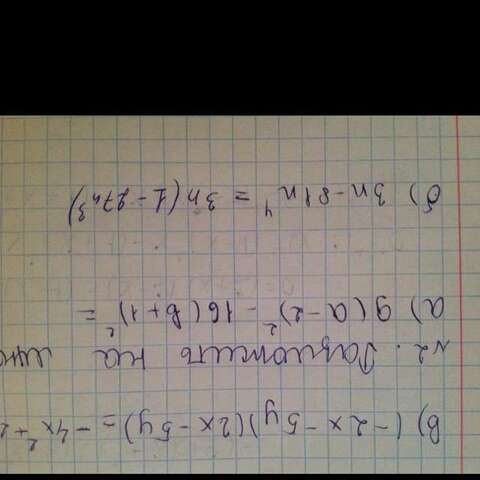 в) (-2x-5y)(2x-5y)=-4x²+2
№2. Разложить на мно
а) 9(a-2)²-16(b+1)²=
б) 3n-81n⁴=3n(1-27n³)